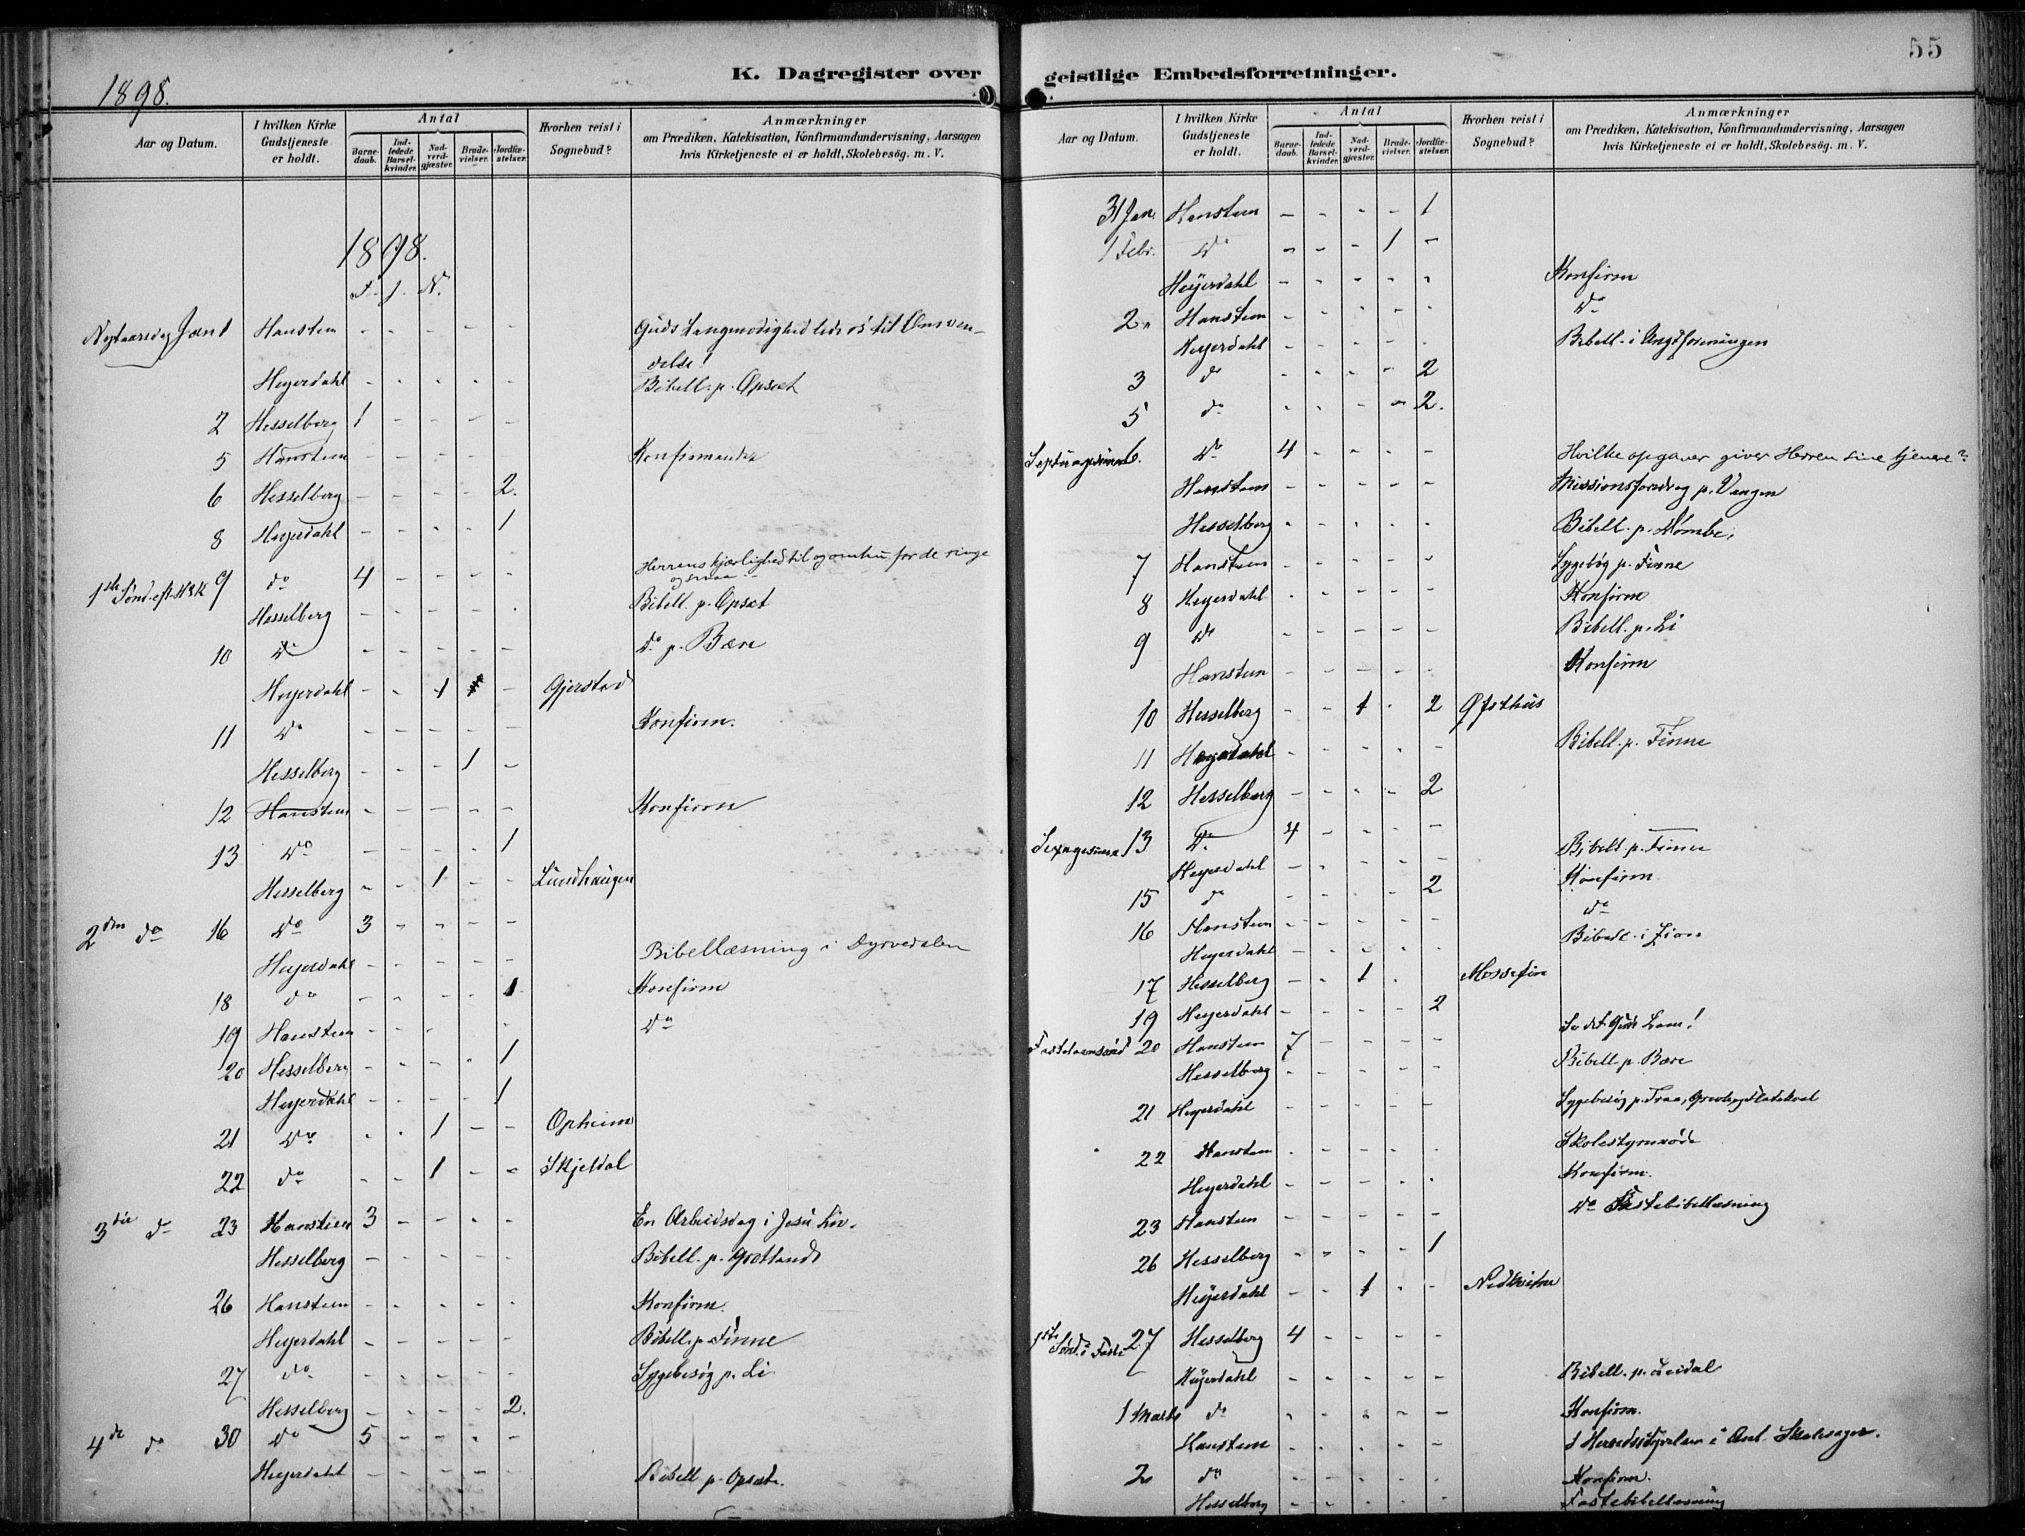 55
K. Dagregister over geistlige Embedsforretninger.
1898.
Aar og Datum. I hvilken Kirke Gudstjeneste er holdt. Antal Barnedaab. Indledede Barselkvinder. Nadverdgjester. Brudevielser. Jordfæstelser. Hvorhen reist i Sognebud? Anmærkninger om Prædiken, Katekisation, Konfirmandundervisning, Aarsagen hvis Kirketjeneste ei er holdt, Skolebesög. m. V.
1898.
I. J. N.
Nytaarsdag Jan 1 Hanstein - - - - - Guds Langmodighed lede os til Omvendelse!
Heyerdahl - - - - - Bibell. p. Opsæt
2 Hesselberg 1 - - - -
5 Hanstein - - - - - Konfirmander
6 Hesselberg - - - - 2.
8 Heyerdahl - - - - 1
1ste Sönd. eft. H3K 9 do 4 - - - - Herrens kjærlighed til og omhu for de ringe og smaa
Hesselberg - - - - - Bibell. p. Opsæt
10 Do - - - - - Do p. Bære
Heyerdahl - - 1 - Gjerstad
11 Do - - - - - Konfirm.
Hesselberg - - - 1 -
12 Hanstein - - - - - Konfirm
13 Do - - - - 1
Hesselberg - - 1 - - Lundhaugen
2den do 16 Do 3 - - - -
Heyerdahl - - - - - Bibellæsning i Dyrvedalen
18 do - - - - 1 Konfirm
19 Hanstein - - - - - Do
20 Hesselberg - - - - 1
Heyerdahl - - - - 1
21 Do - - 1 - - Opheim
22 do - - 1 - - Skjeldal
3die do 23 Hanstein 3 - - - - En Arbeidsdag i Jesu Liv.
Hesselberg - - - - - Bibell. p. Grotland
26 Hanstein - - - - - Konfirm.
Heyerdahl - - - - - Bibell. p. Finne
27 do - - - - - Sygebesög p. Li
Hesselberg - - - - 2.
4de do 30 Do 5 - - - -
Heyerdahl - - - - - Bibell p. Opsæt.
Aar og Datum. I hvilken Kirke Gudstjeneste er holdt. Antal Barnedaab. Indledede Barselkvinder. Nadverdgjester. Brudevielser. Jordfæstelser. Hvorhen reist i Sognebud? Anmærkninger om Prædiken, Katekisation, Konfirmandundervisning, Aarsagen hvis Kirketjeneste ei er holdt, Skolebesög. m. V.
31 Jan. Hanstein - - - - 1
1 Febr. Do - - - 1 -
Heyerdahl - - - - - Konfirm
2 Hanstein - - - - - Do
Heyerdahl - - - - - Bibell. i Ungdforeningen
3 do - - - - 2
5 do - - - - 2.
6. Do 4 - - - - Hvilke opgaver giver Herren sine tjenere?
Hanstein - - - - - Missionsforedrag p. Vangen
Hesselberg - - - - - Bibell. p. Mömbe.
7 Hanstein - - - - - Sygebsög p. Finne
8 Heyerdahl - - - - - Konfirm
9 Do - - - - - Bibell. p. Li
Hanstein - - - - - Konfirm
10 Hesselberg - - 1 - 2 Øfsthus
11 Heyerdahl - - - - - Bibell. p. Finne
12 Hesselberg - - - - 2
Sexagesima 13 Do 4 - - - -
Heyerdahl - - - - - Bibell. p. Finne
15 do - - - - 2 Konfirm.
16 Hanstein - - - - - do
Heyerdahl - - - - - Bibell. i Zion
17 Hesselberg - - 1 - Mossefin
19 Heyerdahl - - - - 2
Fastelavnssönd 20 Hanstein 7 - - - - Se det Guds Lam!
Hesselberg - - - - - Bibell. p. Bære
21 Heyerdahl - - - - - Sygebesög p. Traa,
22 Hanstein - - - - - Skolestyrmöde
Heyerdahl - - - - - Konfirm.
23 Hanstein - - - - - Do Fastebibellæsning
26 Hesselberg - - - - 1
Heyerdahl - - 1 - - Nedkvitne
1ste Sönd. i Faste 27 Hesselberg 4 - - - -
Heyerdahl - - - - - Bibell. p. Leidal
1 Marts do - - - - - Konfirm.
Hanstein - - - - - I Herredsstyrelsen i Anl. Skolesager.
2 do - - - - - Konfirm.
Hesselberg - - - - - Fastebibellæsning